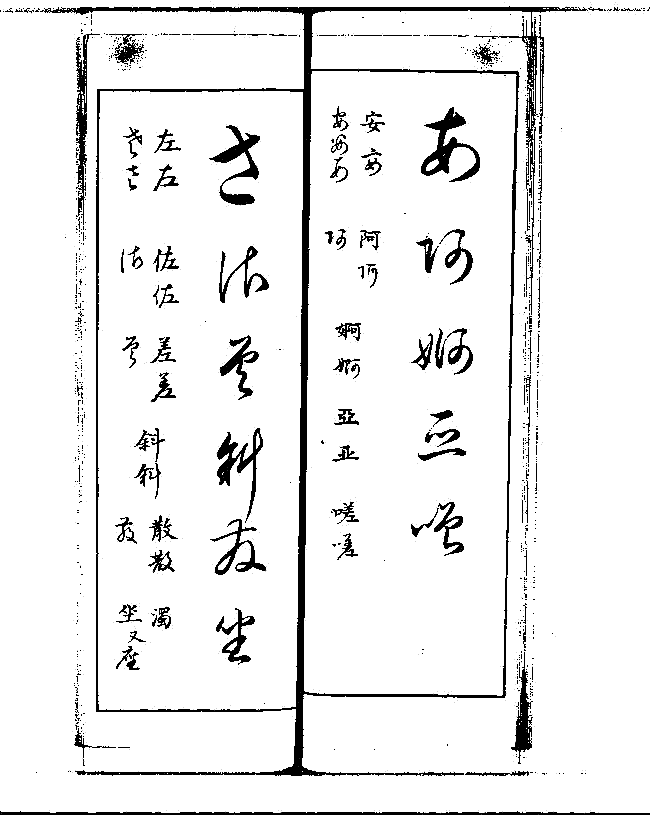 あ阿婀亞嗟
安安 阿阿 婀婀 亞亞 嗟嗟
あ 阿
さ佐差斜散坐
左左 佐佐 差差 斜斜 散散 濁
さ 佐 差 散 坐又座